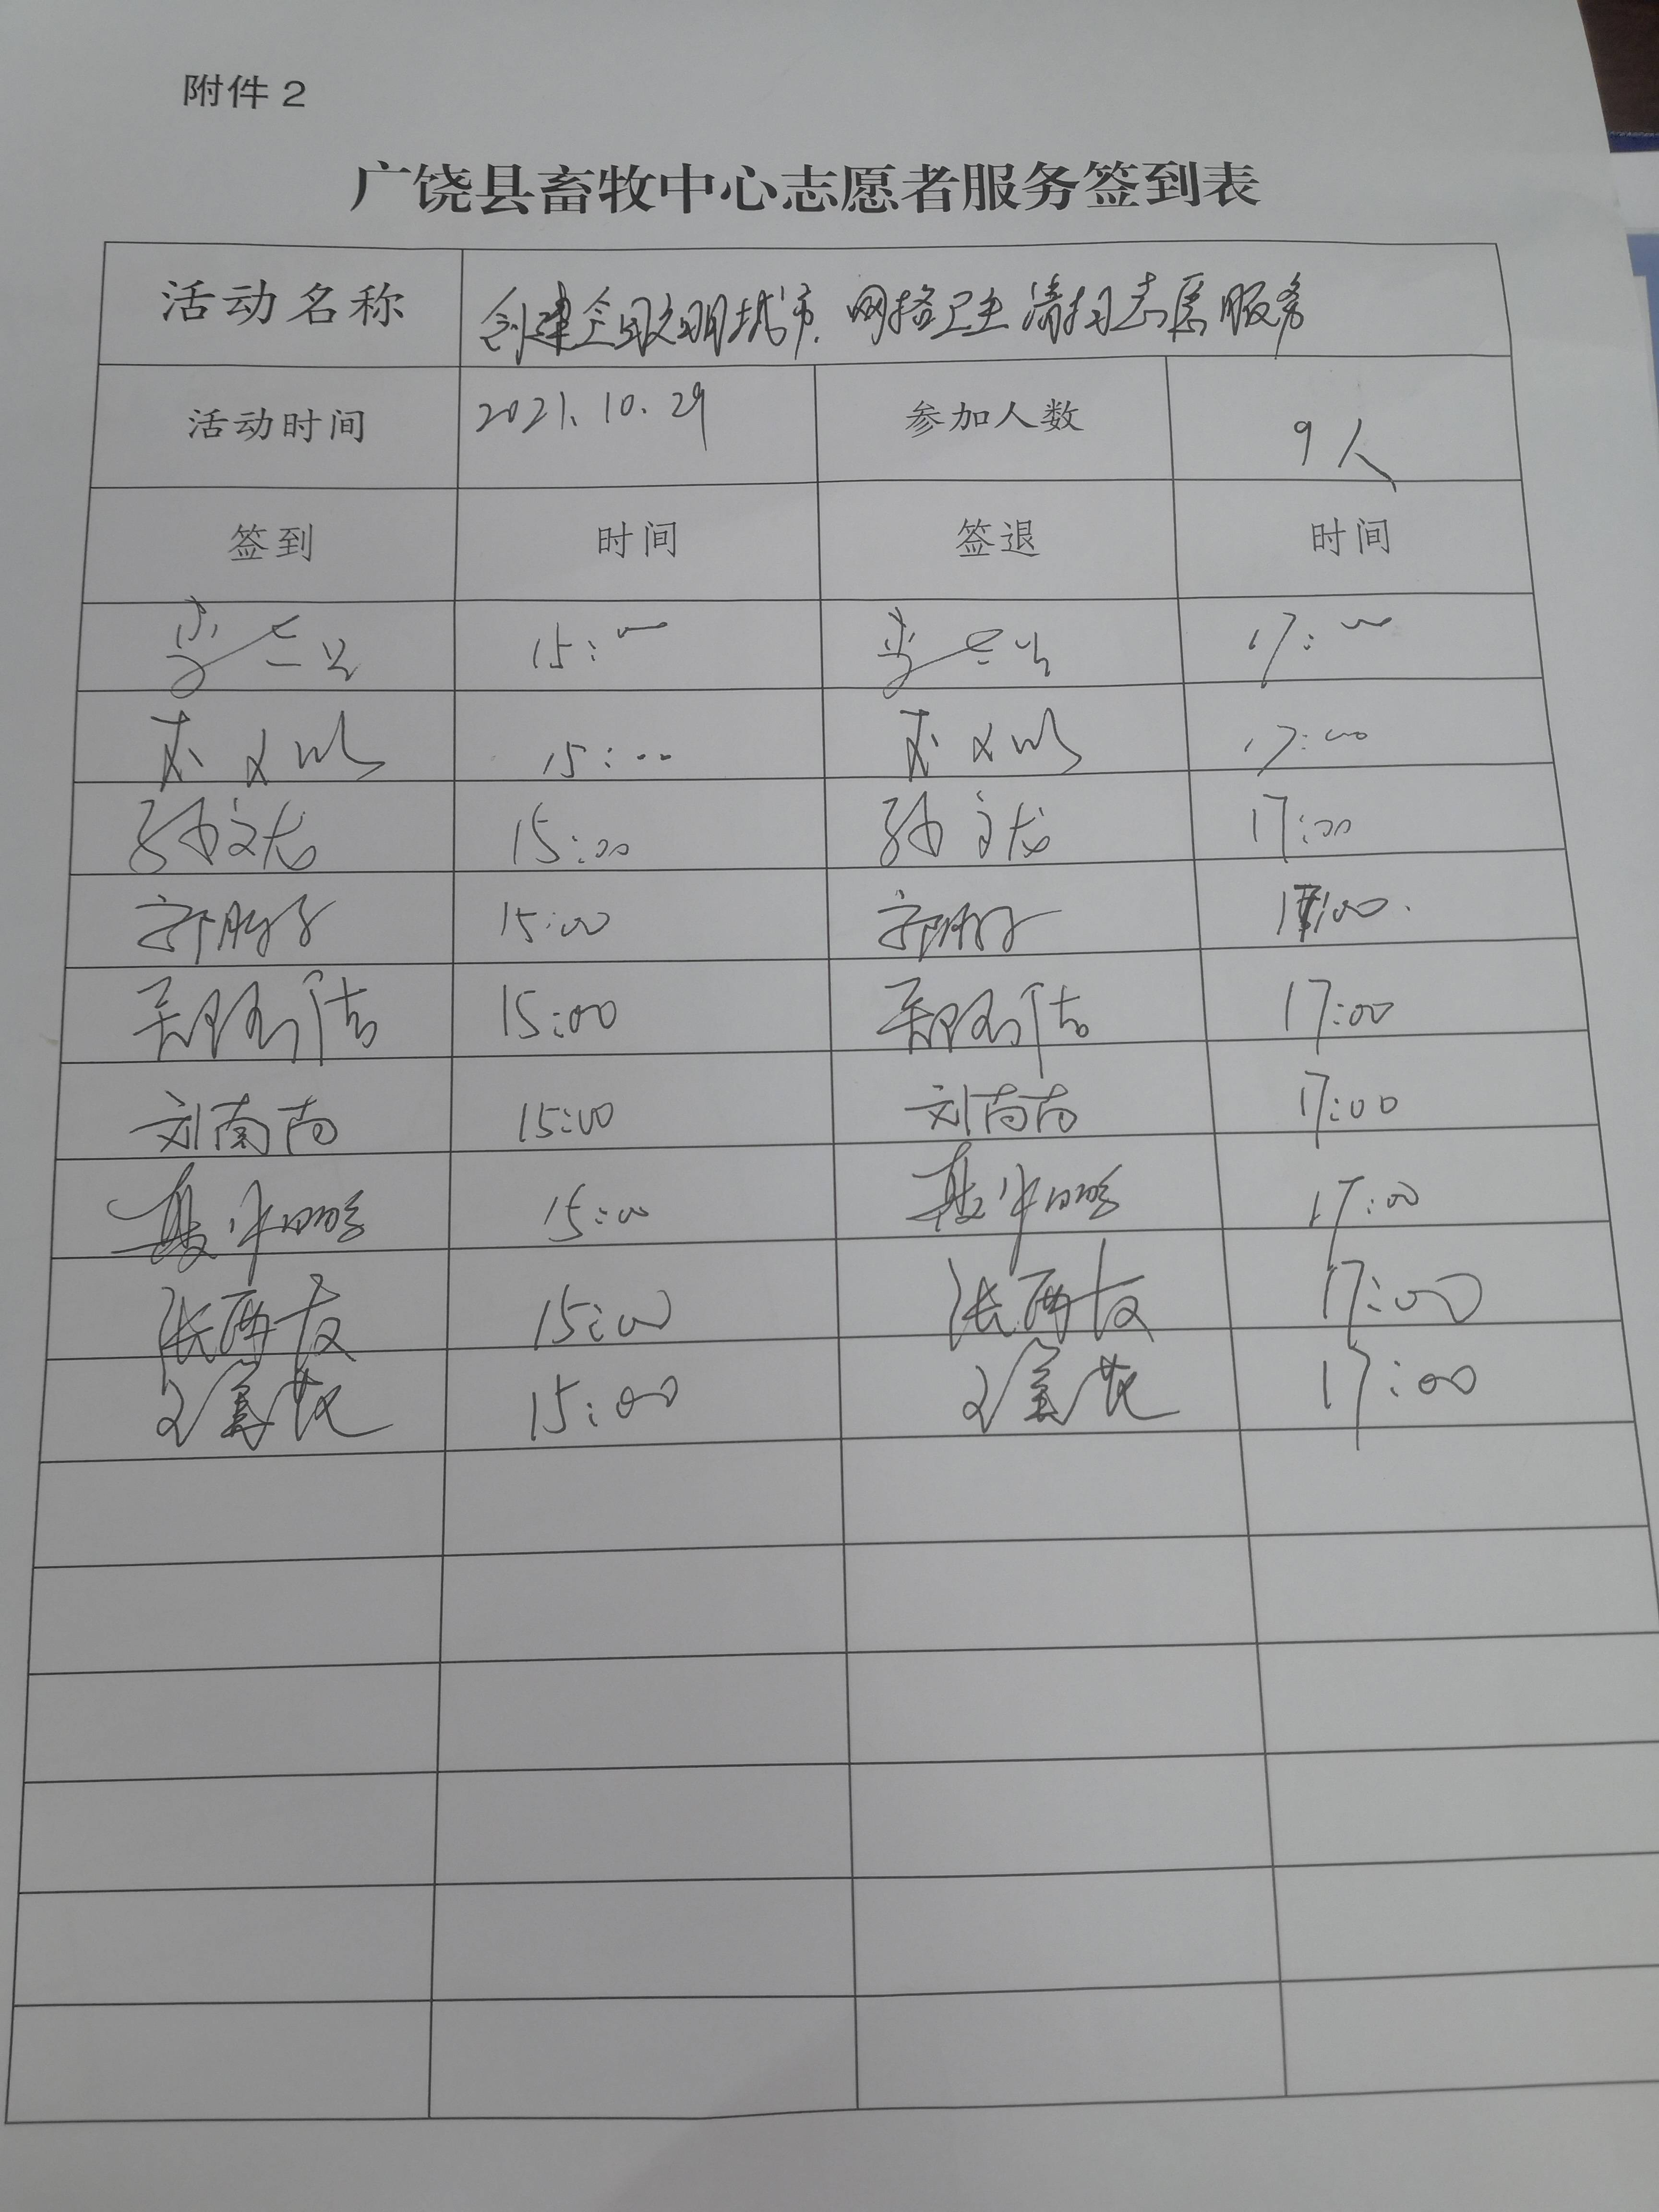 附件2
广饶县畜牧中心志愿者服务签到表
活动名称 创建全国文明城市.网格卫生清扫志愿服务
活动时间 2021.10.29 参加人数 9人
签到 时间 签退 时间
15:00 17:00
15:00 17:00
孙文龙 15:00 孙文龙 17:00
15:00 17:00.
15:00 17:00
刘南南 15:00 刘南南 17:00
15:00 17:00
张西友 15:00 张西友 17:00
15:00 17:00